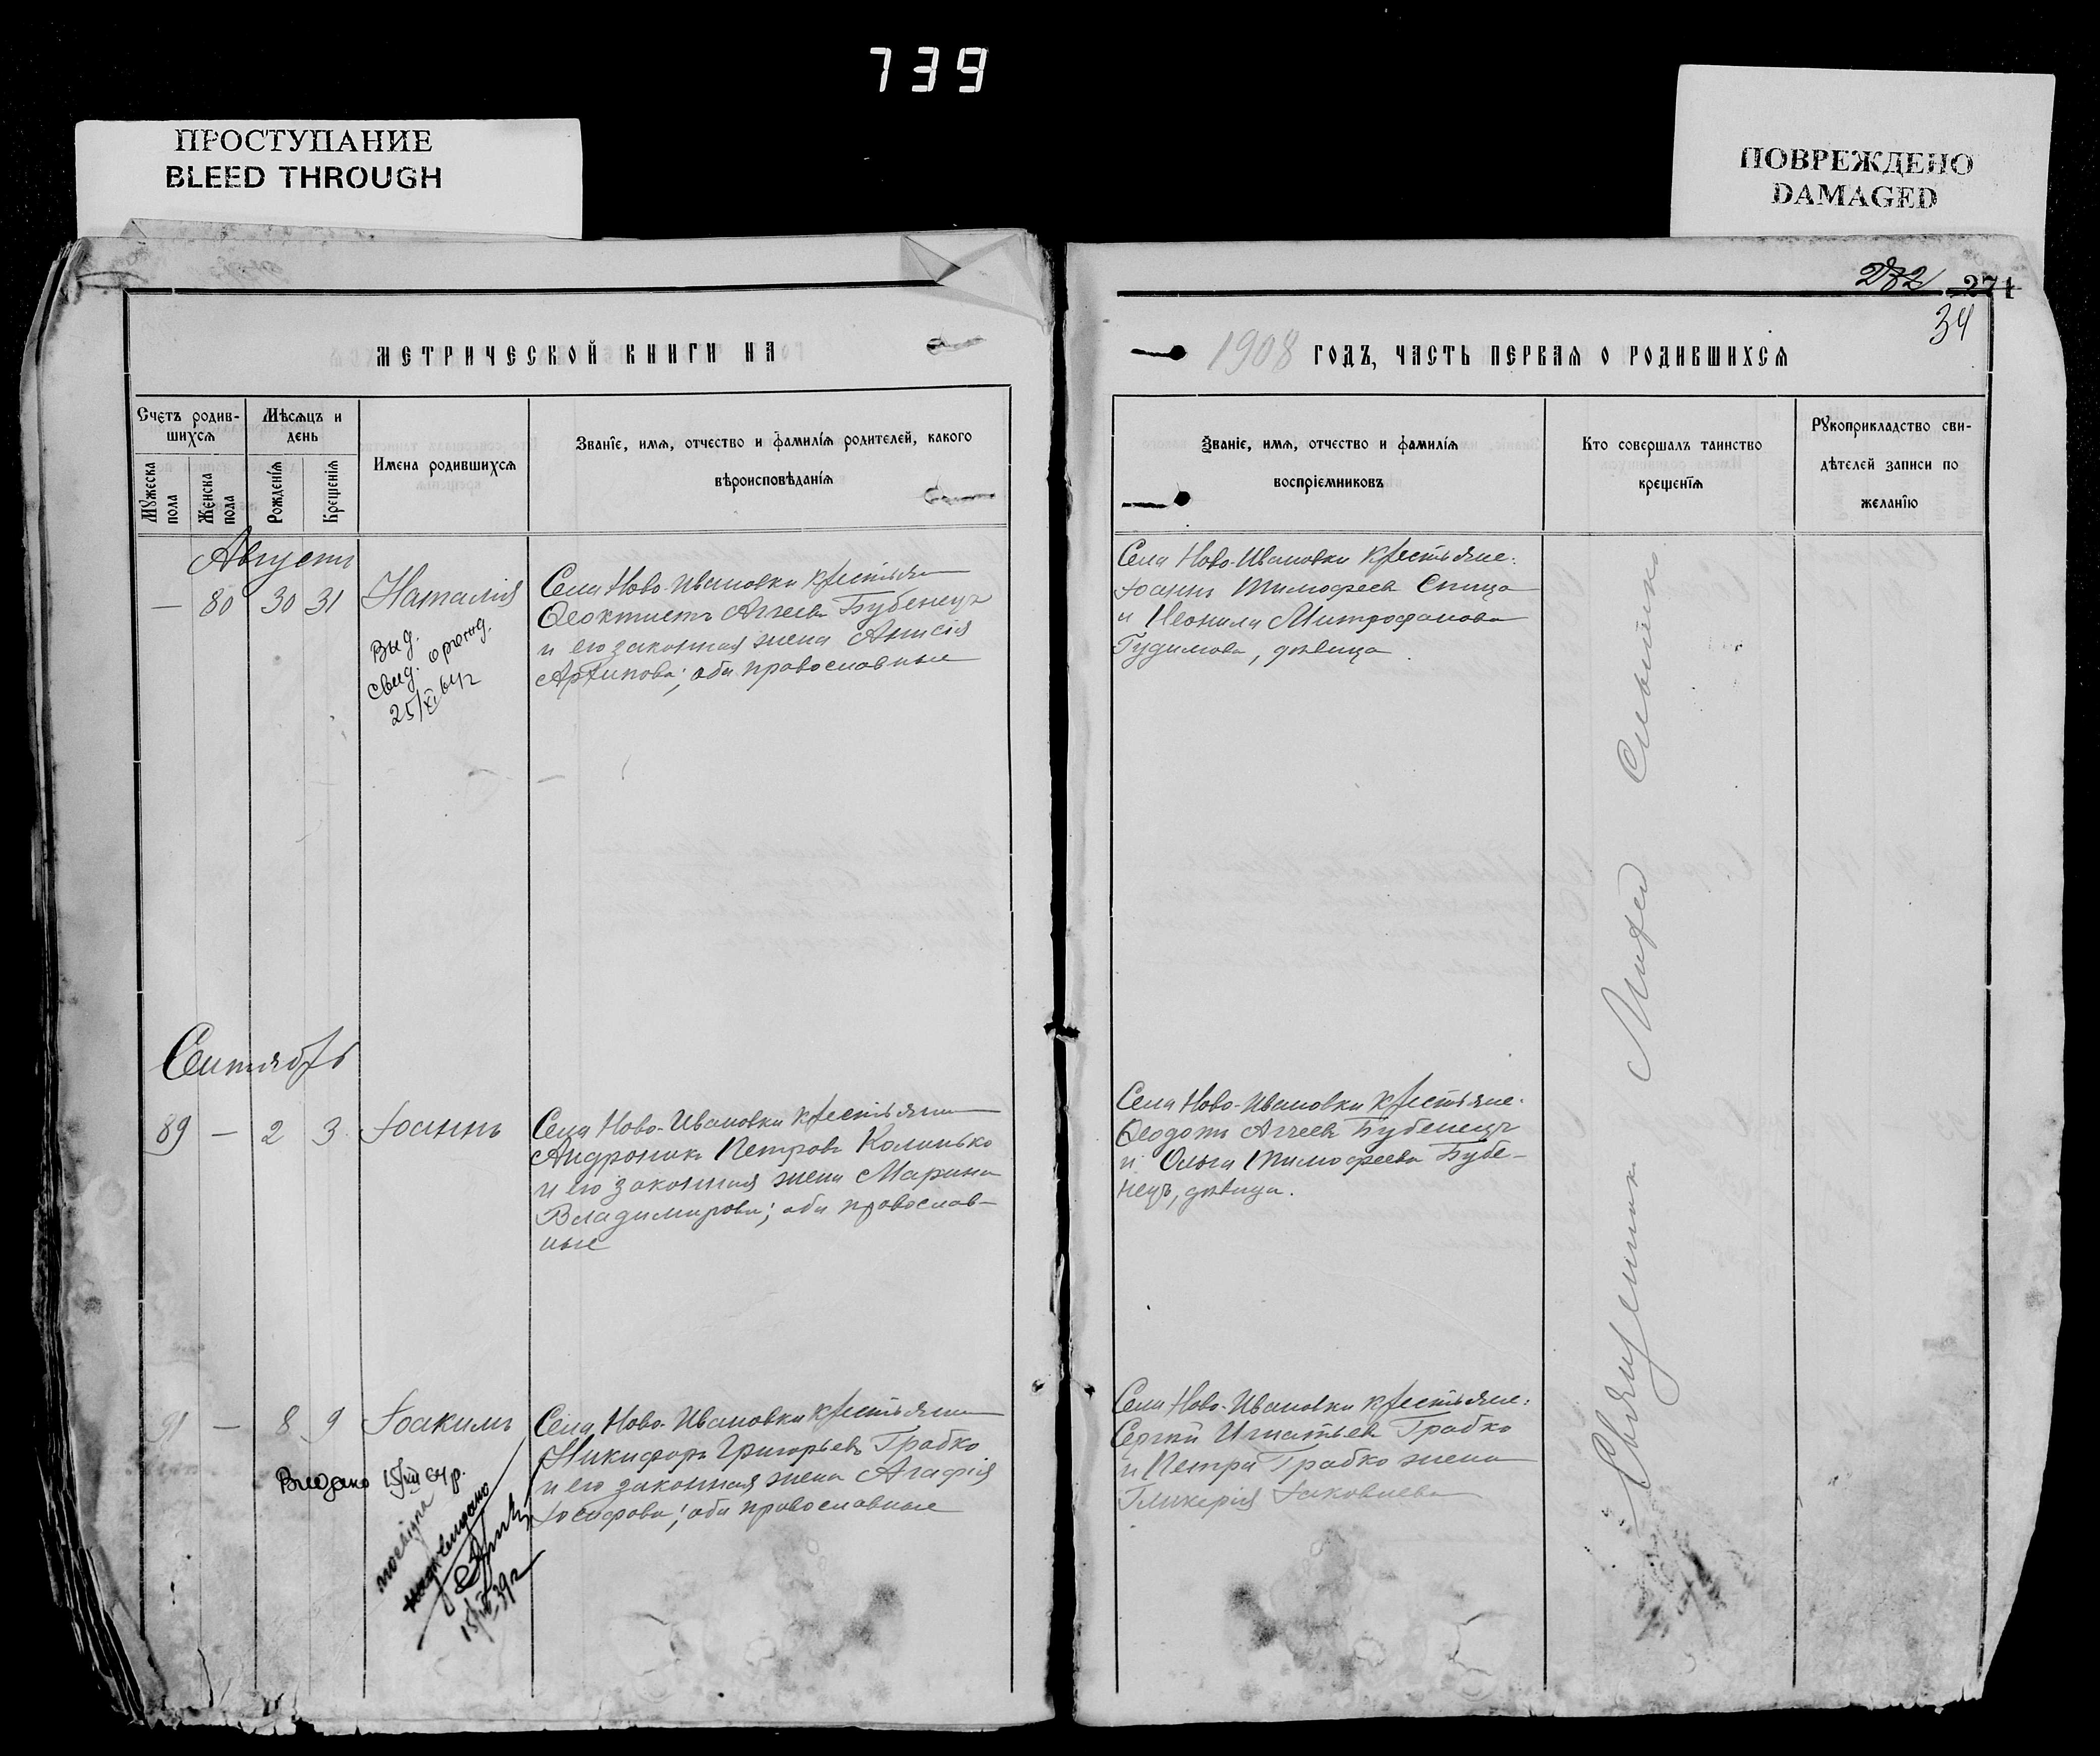 739
ПРОСТУПАНИЕ
BLEED THROUGH
ПОВРЕЖДЕНО
DAMAGED
МЕТРИЧЕСКОЙ КНИГИ НА
Счетъ родив-
шихся
Мѣсяцъ и
день
Мужеска
пола
Женска
пола
Рожденія
Крещенія
Имена родившихся
Званіе, имя, отчество и фамилія родителей, какого
вѣроисповѣданія
Августъ
— 80 30 31 Наталія
Выд.
свид. о рожд.
25/XI 64г
Села Ново-Ивановки крестьянин
Ѳеоктистъ Аггеевъ Бубенецъ
и его законная жена Анисія
Архипова; оба православные
Сентябрь
89 — 2 3 Іоаннъ
Села Ново-Ивановки крестьянин
Андроникъ Петровъ Колинько
и его законная жена Марина
Владимирова; оба православ-
ные
91 — 8 9 Іоакимъ
Видано 15/VII 64р.
Села Ново-Ивановки крестьянин
Никифоръ Григорьевъ Грабко
и его законная жена Агафія
Іосифова; оба православные
272 271
34
1908 ГОДЪ, ЧАСТЬ ПЕРВАЯ О РОДИВШИХСЯ
Званіе, имя, отчество и фамилія
воспріемниковъ
Кто совершалъ таинство
крещенія
Рукоприкладство сви-
дѣтелей записи по
желанію
Села Ново-Ивановки крестьяне:
Іоаннъ Тимофеевъ Спица
и Неонила Митрофанова
Гудимова, дѣвица
Села Ново-Ивановки крестьяне:
Ѳеодотъ Аггеевъ Бубенецъ
и Ольга Тимофеева Бубе-
нецъ, дѣвица.
Села Ново-Ивановки крестьяне:
Сергій Игнатьевъ Грабко
и Петра Грабко жена
Гликерія Іаковлева
Священник Михей Слышко